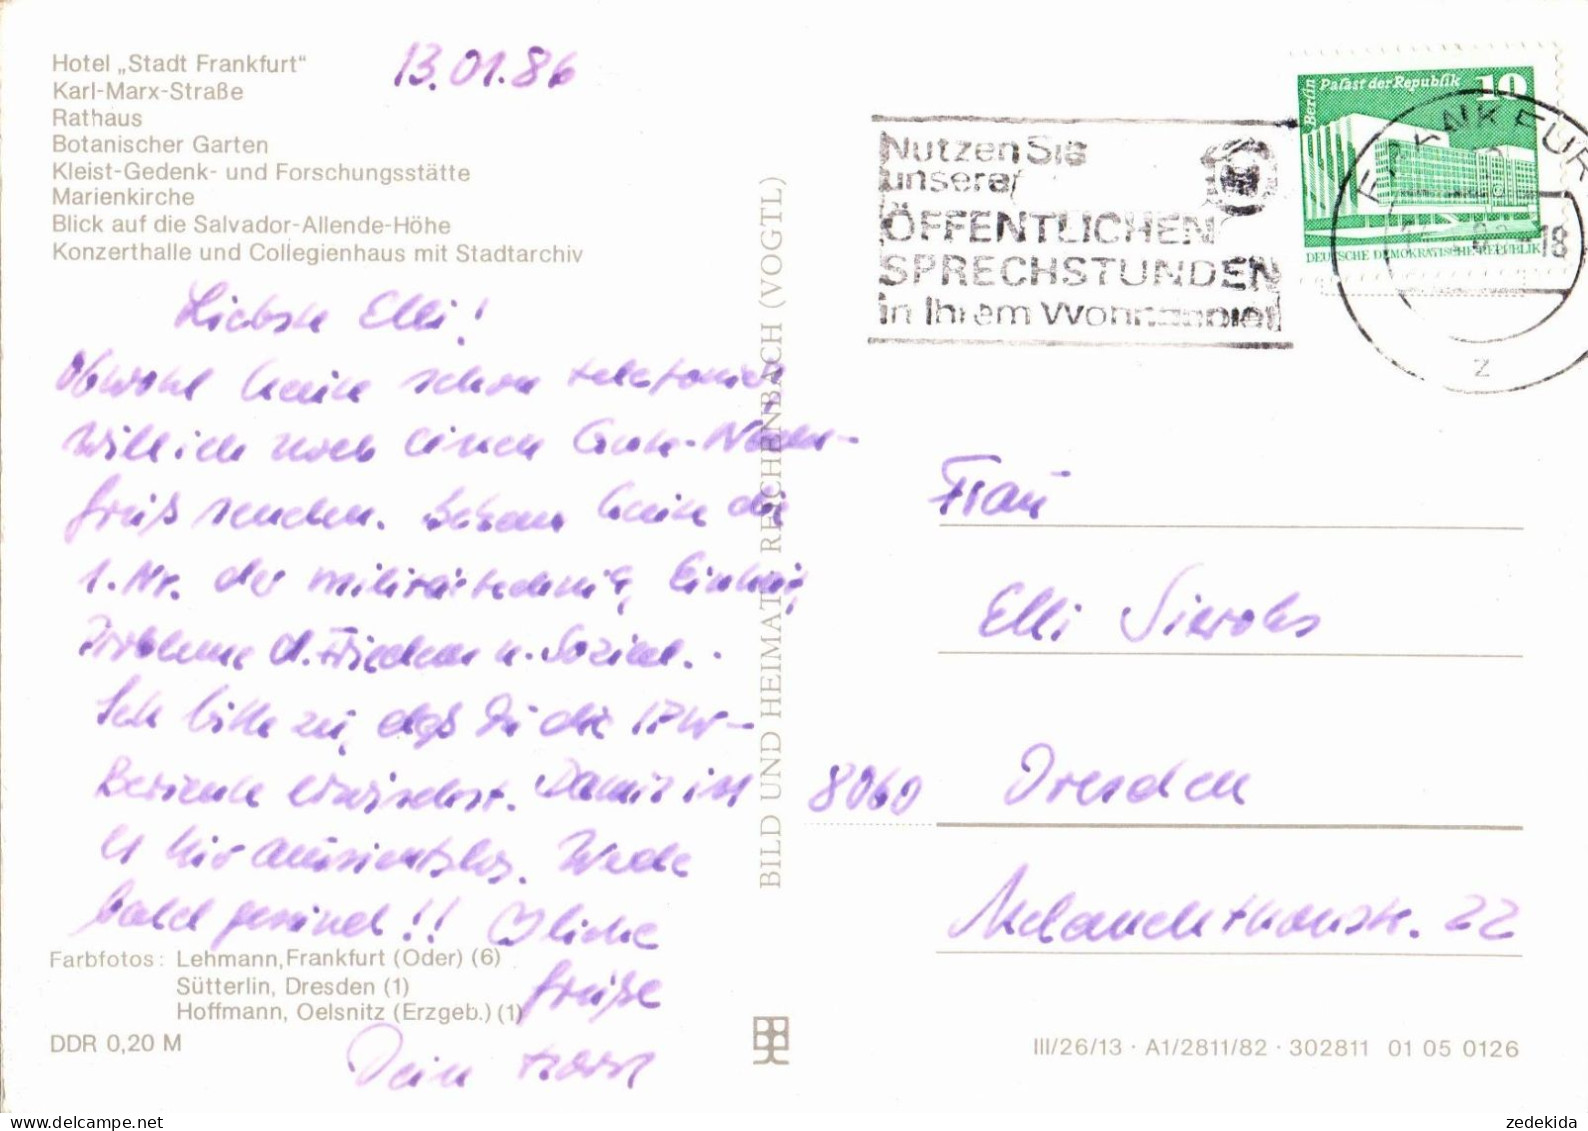 Hotel „Stadt Frankfurt“
Karl-Marx-Straße
Rathaus
Botanischer Garten
Kleist-Gedenk- und Forschungsstätte
Marienkirche
Blick auf die Salvador-Allende-Höhe
Konzerthalle und Collegienhaus mit Stadtarchiv
13.01.86
Liebste Elli!
Obwohl heute schon telefoniert
will ich noch einen Gute-
gruß senden. heute die
1. Nr. der militärtechnik, Einheit,
Probleme d. Frieden u. Sozial..
Ich bitte zu, daß Du die
. Damit ist
es hier aussichtslos. Werde
bald gesund!! Liebe
Grüße
Dein Horst
Farbfotos: Lehmann, Frankfurt (Oder) (6)
Sütterlin, Dresden (1)
Hoffmann, Oelsnitz (Erzgeb.) (1)
DDR 0,20 M
BILD UND HEIMAT REICHENBACH (VOGTL)
Nutzen Sie
unsere
ÖFFENTLICHEN
SPRECHSTUNDEN
in Ihrem Wohngebiet
Berlin Palast der Republik 10
DEUTSCHE DEMOKRATISCHE REPUBLIK
FRANKFUR
-18
Z
Frau
Elli
8060 Dresden
Melanchthonstr. 22
III/26/13 · A1/2811/82 · 302811 01 05 0126
delcampe.net
zedekida